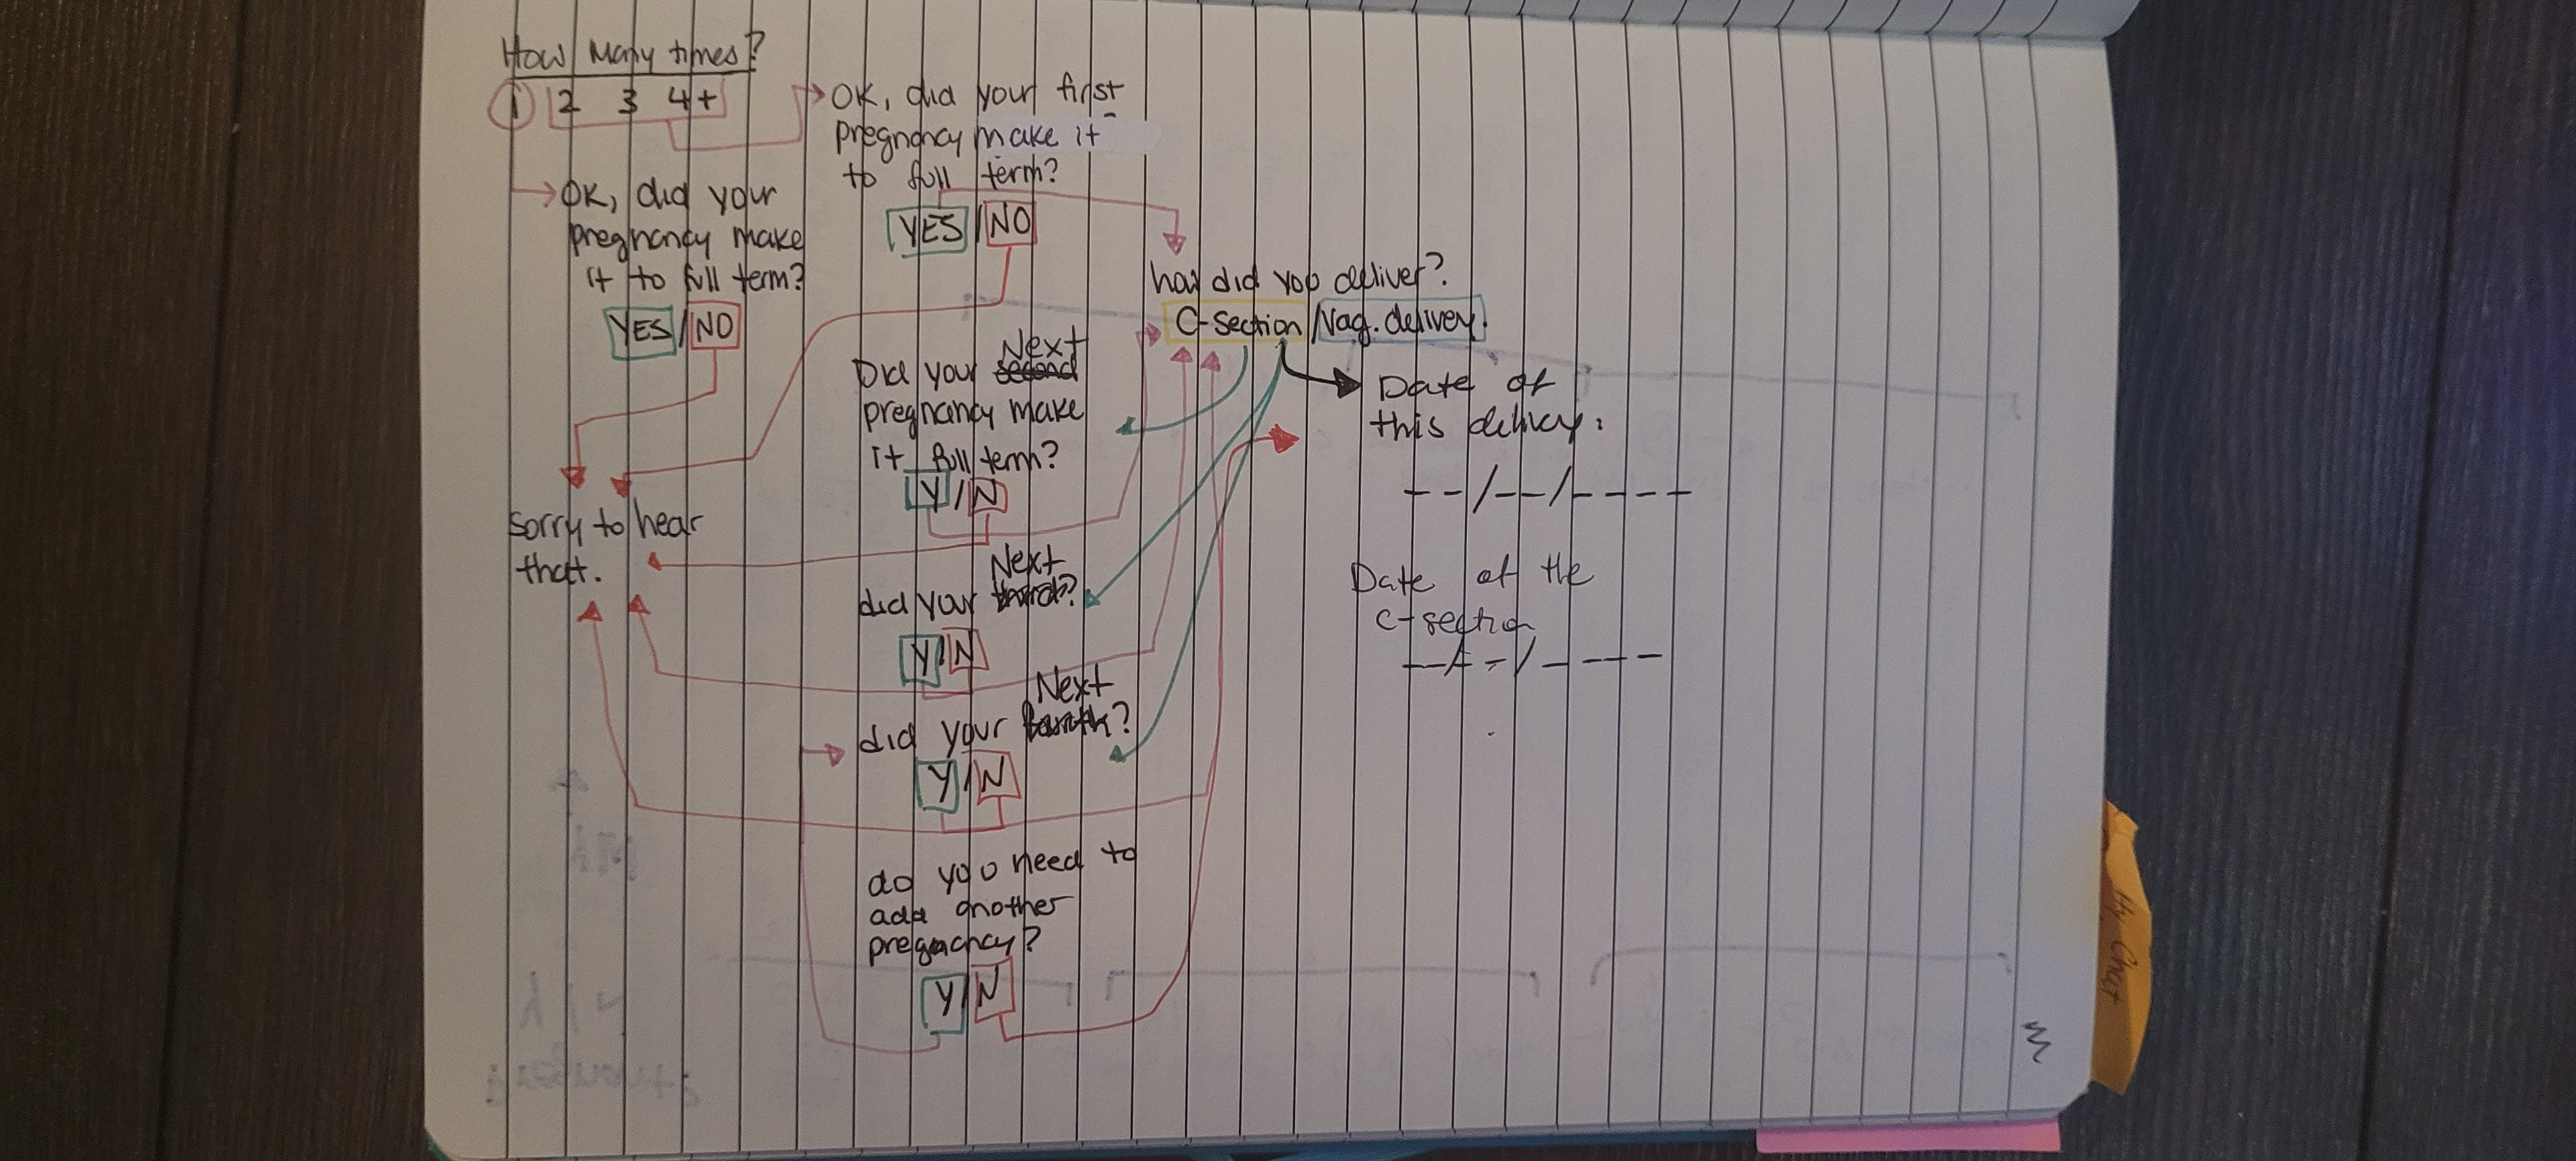 How Many times?
1 2 3 4+
OK, did your
pregnancy make
it to full term?
YES/NO
sorry to hear
that.
OK, did your first
pregnancy make it
to full term?
YES/NO
Next
Did your second
pregnancy make
it full term?
Y/N
Next
did your third?
Y/N
Next
did your fourth?
Y/N
do you need to
add another
pregnancy?
Y/N
how did you deliver?
C-Section/Vag. delivery.
Date of
this delivery:
--/--/----
Date of the
C-section
--/--/----
My Chart